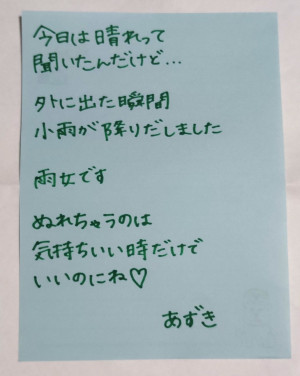 今日は晴れって
聞いたんだけど…
外に出た瞬間
小雨が降りだしました
雨女です
ぬれちゃうのは
気持ちいい時だけで
いいのにね♡
あずき